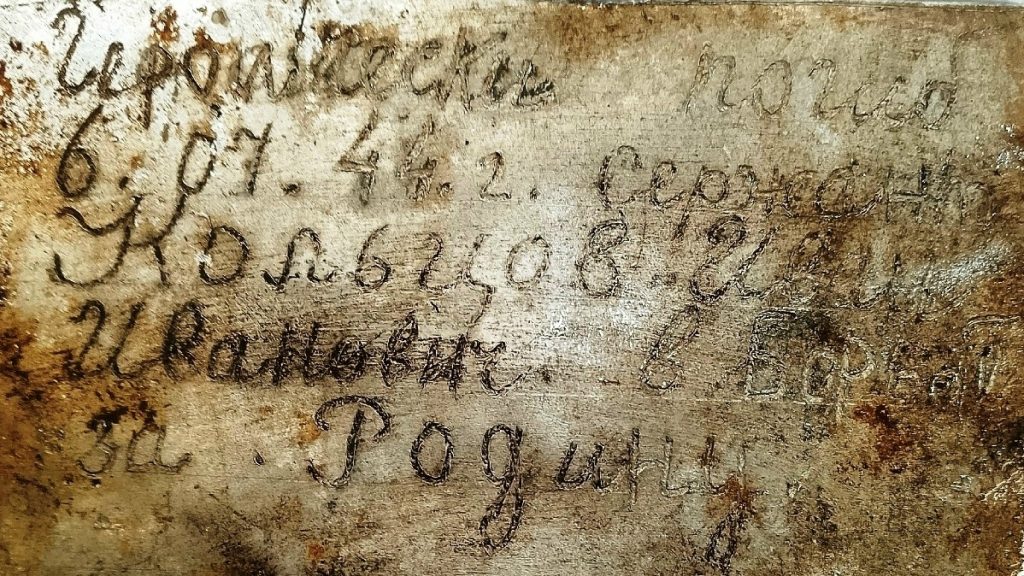 Ироически погиб
6.07.44.г. Сержант
Кольцов.
Иванович. в
за Родину